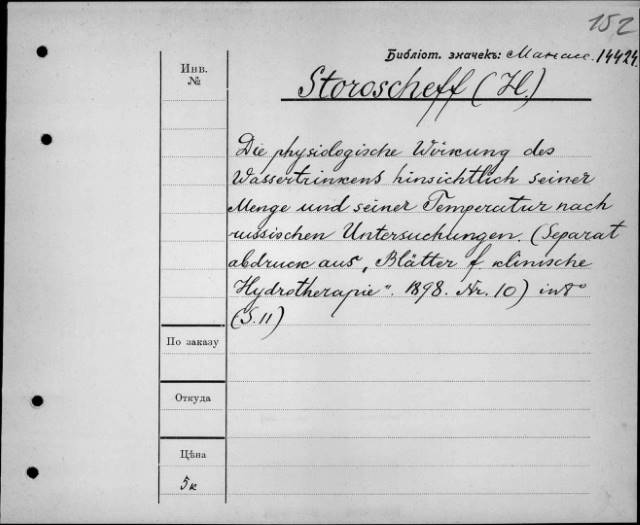 152
Библіот. значекъ: Манас. 14424.
Инв.
№
Storoscheff (H.)
Die physiologische Wirkung des
Wassertrinkens hinsichtlich seiner
Menge und seiner Temperatur nach
russischen Untersuchungen. (Separat
abdruck aus „Blätter f. klinische
Hydrotherapie". 1898. Nr. 10) in 8°
(S. 11)
По заказу
Откуда
Цѣна
5к